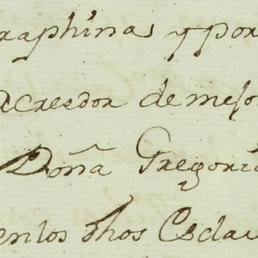 raphinas y por
acreedor de mejo
Doña Gregori
en los dhos Escla